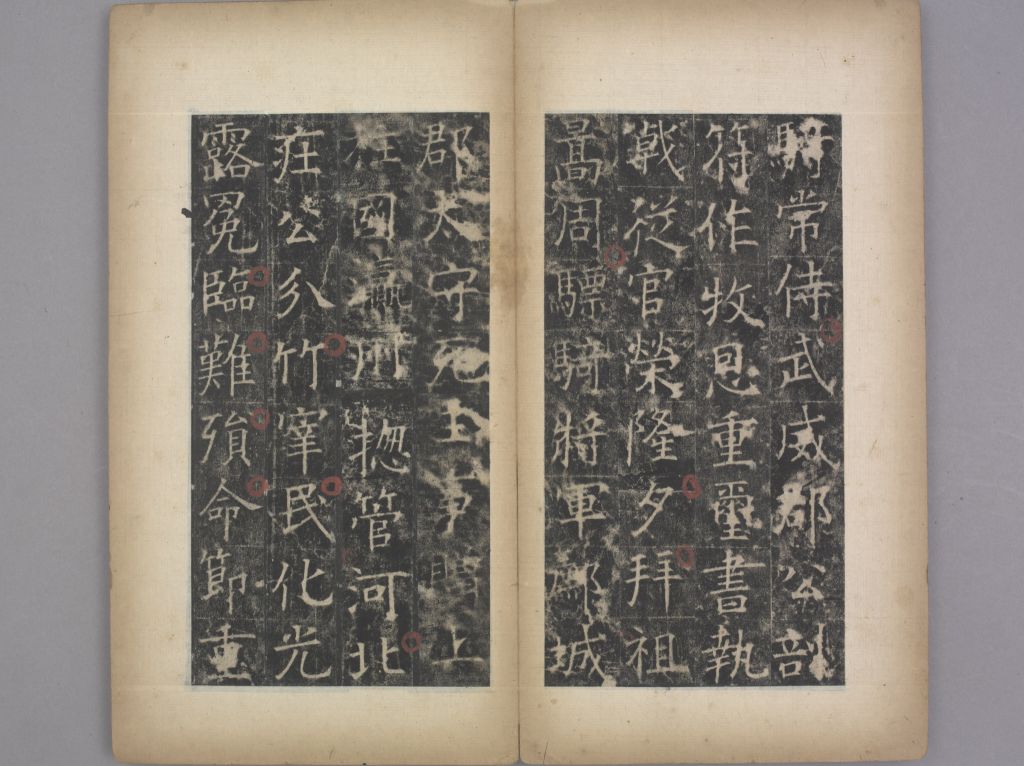 騎常侍武威郡公剖
符作牧恩重璽書執
戟從官榮隆夕拜祖
暠周驃騎將軍鄜城
郡太守上
柱國瀛州揔管河北
莊公分竹宰民化光
露冕臨難殞命節重